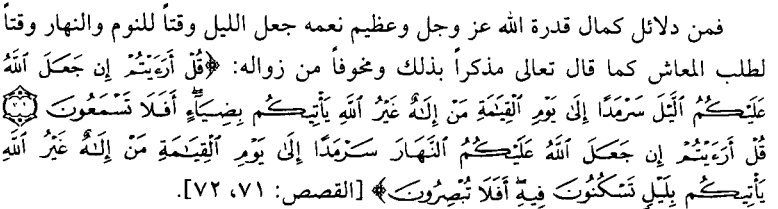 فمن دلائل كمال قدرة الله عز وجل وعظيم نعمه جعل الليل وقتاً للنوم والنهار وقتاً
لطلب المعاش كما قال تعالى مذكراً بذلك ومخوفاً من زواله: ﴿قُلْ أَرَءَيْتُمْ إِن جَعَلَ ٱللَّهُ
عَلَيْكُمُ ٱلَّيْلَ سَرْمَدًا إِلَىٰ يَوْمِ ٱلْقِيَٰمَةِ مَنْ إِلَٰهٌ غَيْرُ ٱللَّهِ يَأْتِيكُم بِضِيَآءٍ ۖ أَفَلَا تَسْمَعُونَ ۝٧١
قُلْ أَرَءَيْتُمْ إِن جَعَلَ ٱللَّهُ عَلَيْكُمُ ٱلنَّهَارَ سَرْمَدًا إِلَىٰ يَوْمِ ٱلْقِيَٰمَةِ مَنْ إِلَٰهٌ غَيْرُ ٱللَّهِ
يَأْتِيكُم بِلَيْلٍ تَسْكُنُونَ فِيهِ ۖ أَفَلَا تُبْصِرُونَ﴾ [القصص: ٧١، ٧٢].